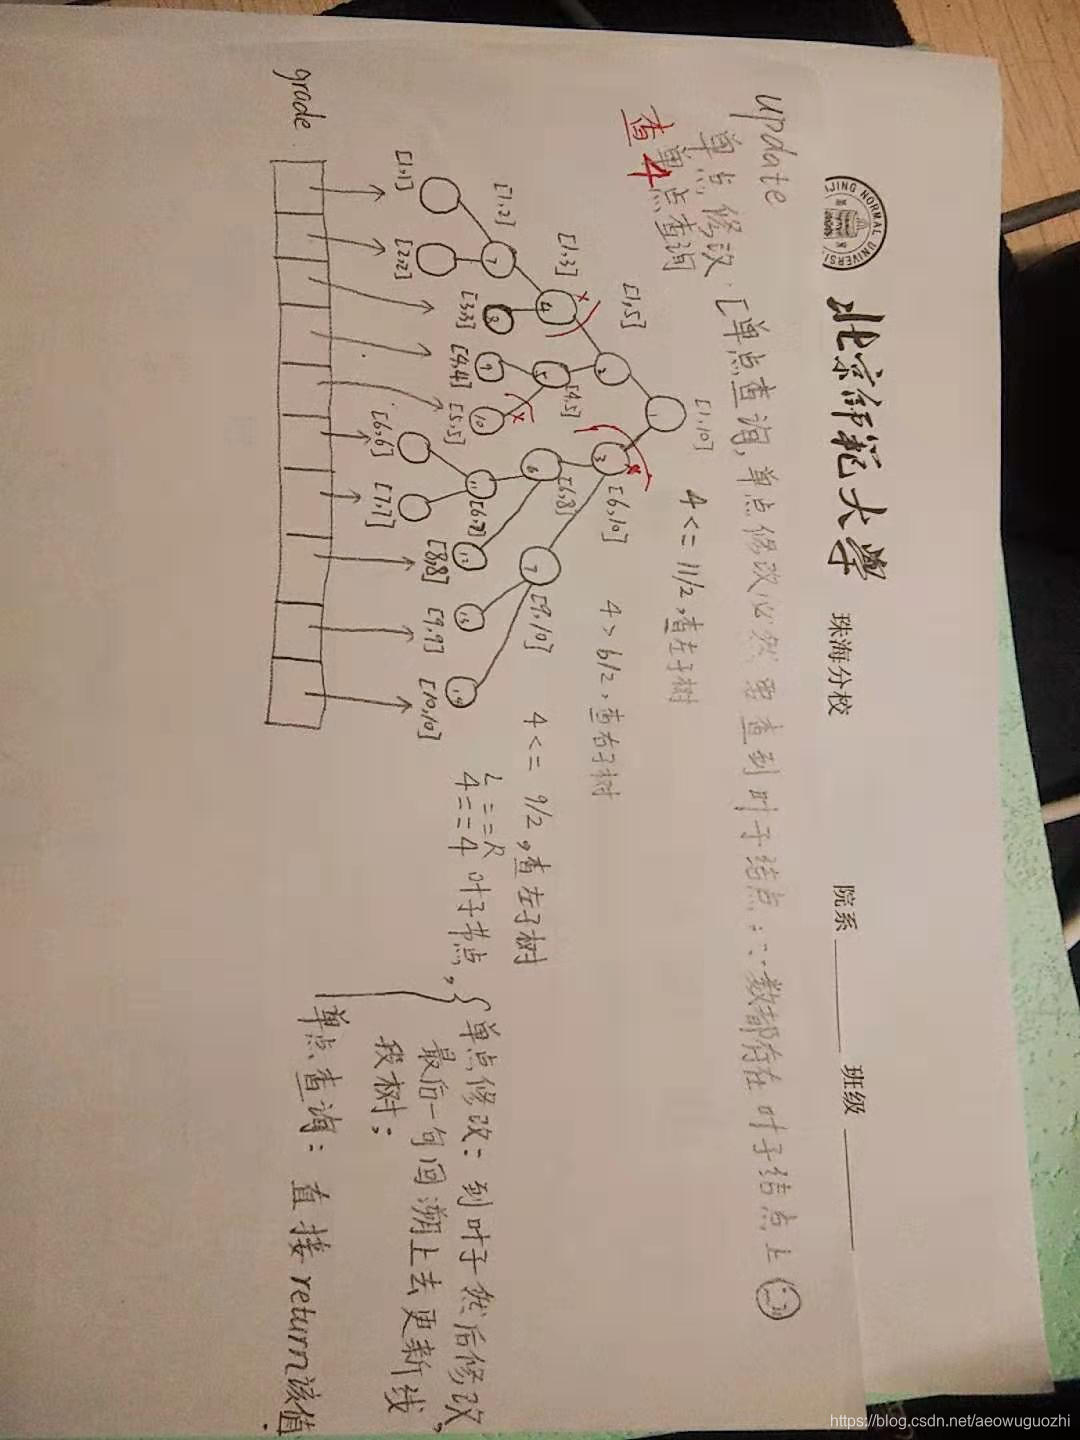 JING NORMAL UNIVERSI
北京师范大学 珠海分校 院系 班级
update
单点修改.[单点查询,单点修改必然要查到叶子结点∵数都存在叶子结点上
单点查询
查4
[1,10]
4<=11/2,查左子树
[1,5]
[6,10]
4>6/2,查右子树
[1,3]
[4,5]
[6,8]
[9,10]
4<=9/2,查左子树
[1,2]
[6,7]
L==R
4==4 叶子节点,
[1,1]
[2,2]
[3,3]
[4,4]
[5,5]
[6,6]
[7,7]
[8,8]
[9,9]
[10,10]
单点修改:到叶子然后修改,
最后一句回溯上去更新线
段树;
单点查询:直接return该值.
grade
https://blog.csdn.net/aeowuguozhi